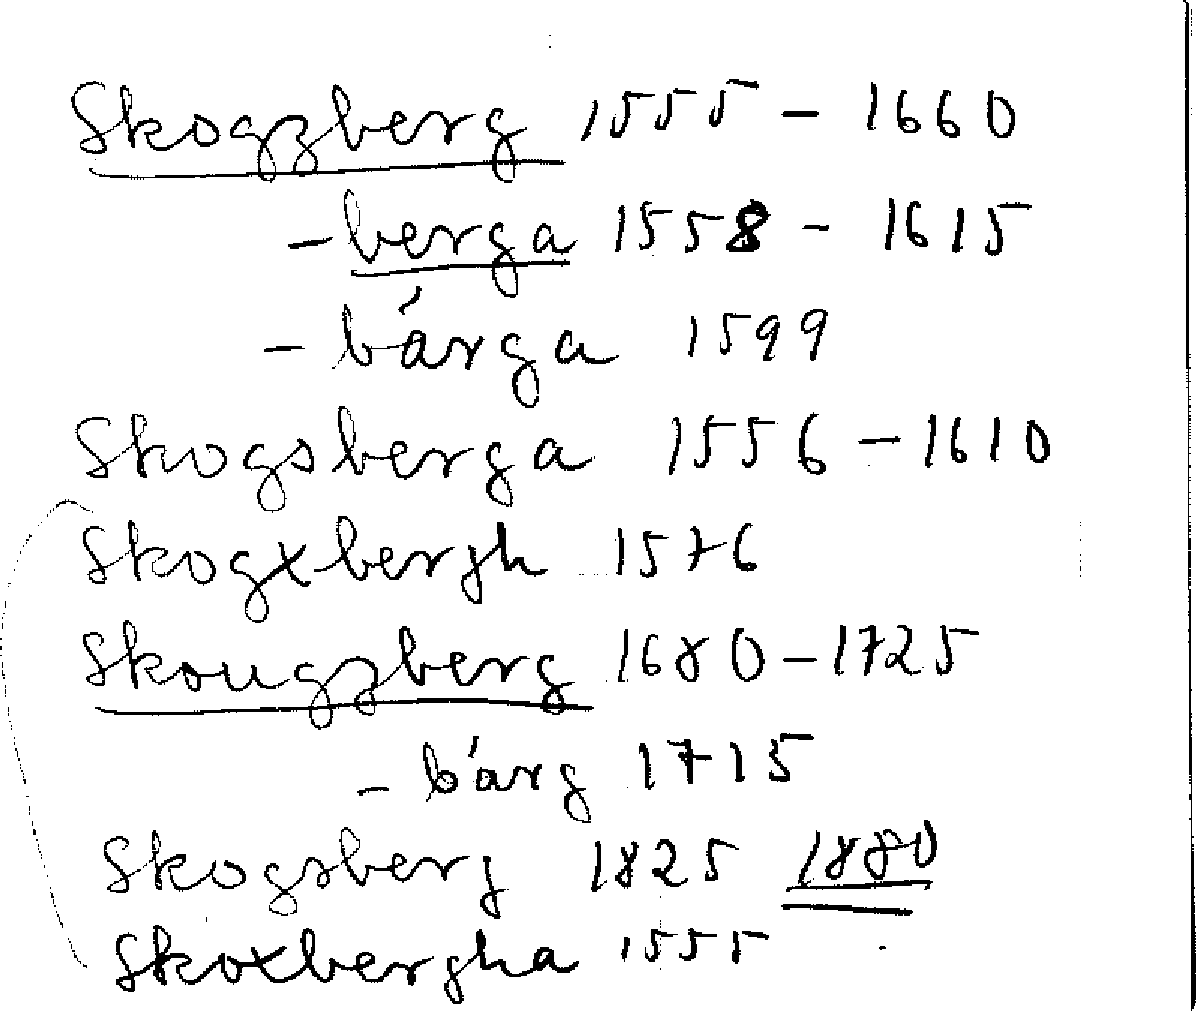 Skogzberg 1555 - 1660
- berga 1558 - 1615
- bárga 1599
Skogsberga 1556 - 1610
Skogxbergh 1576
Skougzberg 1680 - 1725
- bárg 1715
Skogsberg 1825 1880
Skoxbergha 1555